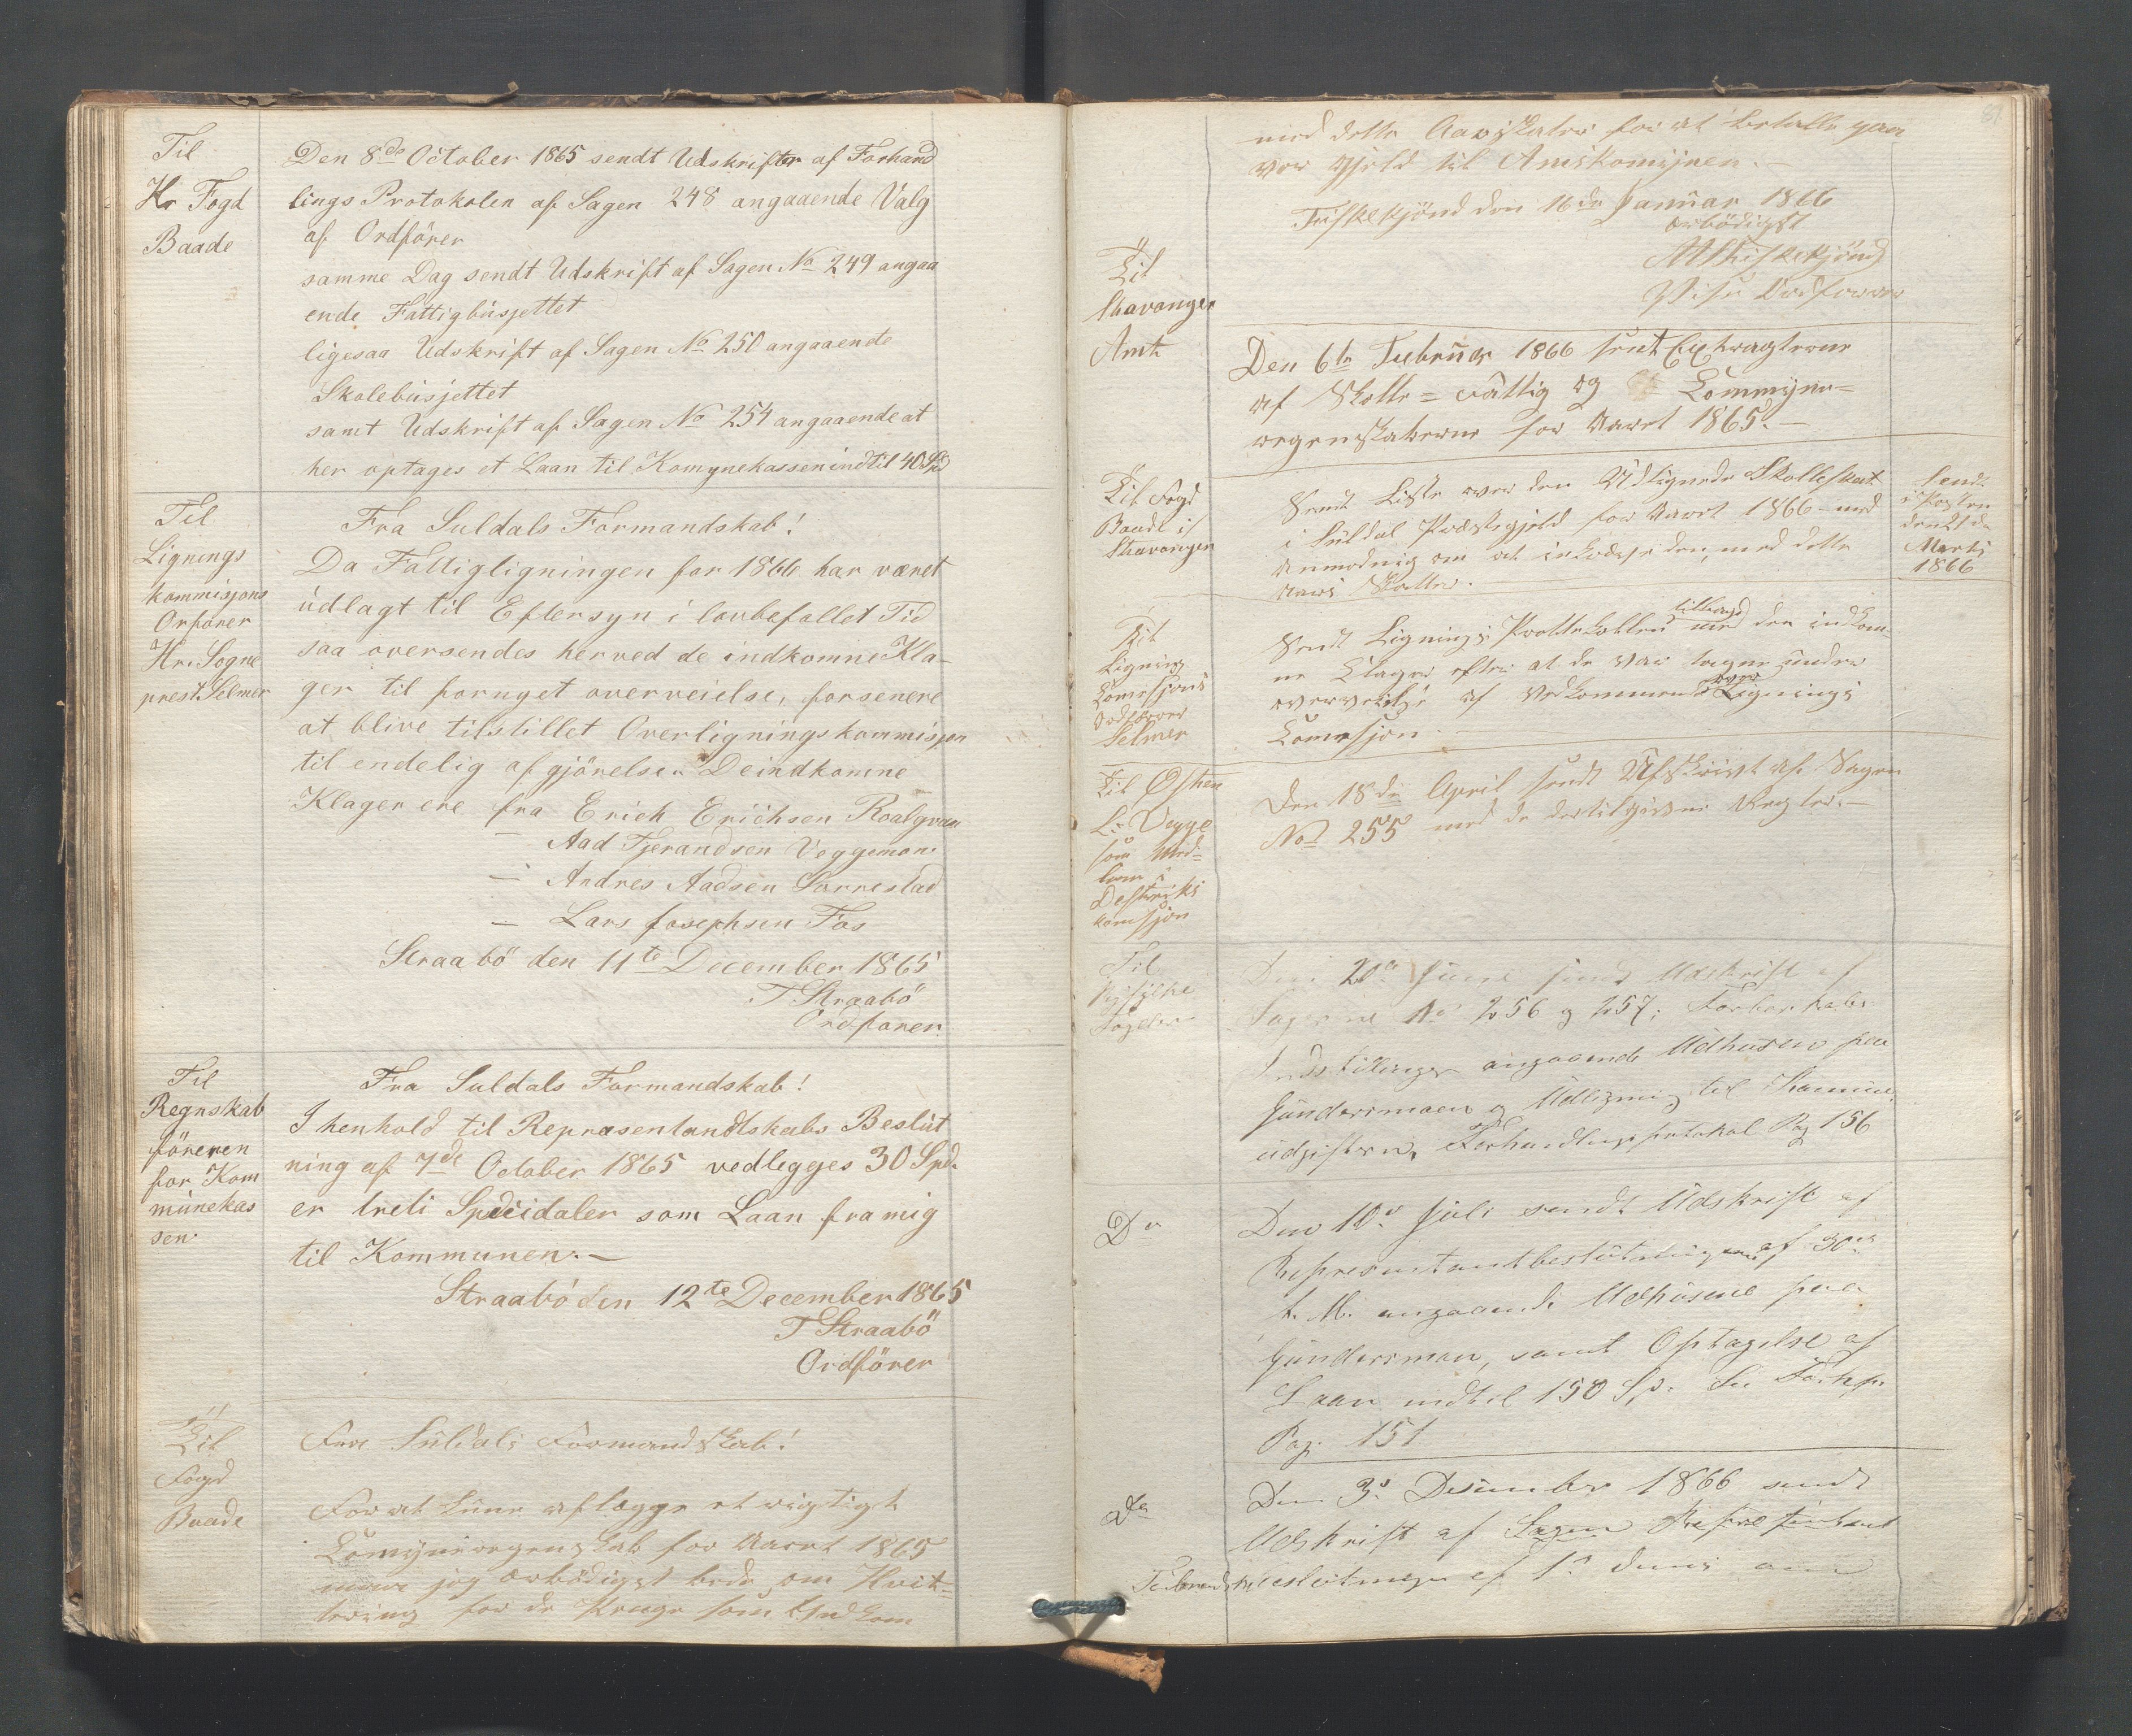 Til
Hr Fogd
Baade
Den 8de October 1865 sendt Udskrifter af Forhand
lings Protokolen af Sagen 248 angaaende Valg
af Ordförer
samme Dag sendt Udskrift af Sagen No 249 angaa
ende Fattigbusjettet
ligesaa Udskrift af Sagen No 250 angaaende
Skolebusjettet
samt Udskrift af Sagen No 254 angaaende at
her optages et Laan til Komynekassen indtil 40 Spd
Til
Lignings
kommisjons
Orförer
Hr. Sogne
prest Selmer
Fra Suldals Formandskab!
Da Fattigligningen for 1866 har været
udlagt til Eftersyn i lovbefallet Tid
saa oversendes herved de indkomne Kla-
ger til fornyet overveielse, for senere
at blive tilstillet Overligningskommisjon
til endelig afgjörelse. De indkomne
Klager ere fra Erich Erichsen Roalqvam
— Aad Tjerandsen Veggemoen
— Andres Aadsen Sarrestad
— Lars Josephsen Fos
Straabö den 11te December 1865
T Straabö
Ordförer
Til
Regnskab
föreren
for Kom
munekas
sen.
Fra Suldals Formandskab!
I henhold til Repræsentandtskabs Beslut
ning af 7de October 1865 vedlegges 30 Spd.
er treti Speciedaler som Laan fra mig
til Kommunen. —
Straabö den 12te December 1865
T Straabö
Ordförer
Til
Fogd
Baade
Fra Suldals Formandskab!
For at kune aflægge et rigtigt
Komyneregenskab for Aaret 1865
maa jeg ærbödigst bede om Kvit-
tering for de Penge som Indkom
med dette Aars skater for at betalle
vor Gjeld til Amtskomynen. —
Fiskekjönd den 16de Januar 1866
ærbödigst
Fiskekjönd
Vise Ordförer
Til
Stavanger
Amt
Den 6te Februar 1866 sent Extragterne
af Skolle= Fattig og Kommyne=
regenskaberne for Aaret 1865. —
Til Fogd
Baade i
Stavanger
Sendt Liste over den Udlignede Skolleskat
i Suldal Præstegjeld for Aaret 1866 med
Anmodnig om at inkræsse den, med dette
Aars Skatter.
Sendt
i Posten
den
Marts
1866
Til
Ligning
Komisjons
Ordförer
Selmer
Sendt Lignings Prottokollen tilbage med den indkom-
ne Klager efter at de var tagne under
overveielse af Vedkommende over Lignings
Komisjon.
Til Östen
L. Vegge
som Med=
lem i
Destrikts
komisjon
Den 18de April sendt Ufskrivt af Sagen
No 255 med de dertilgivne Regler. —
Til
Fogden
Den 20de Juni sendt Udskrift af
Sagerne No 256 og 257; Forberkabs
Indstillinger angaaende Udhusene paa
Gundersmoen og Udligning til Kommune
udgifterne, Forhandlingsprotokol Pag 156
Do
Den 10de Juli sendt Udskrift af
Representantbeslutningerne af 30te
f. M. angaaende Udhusene paa
Gundersmoen, samt Optagelse af
Laan indtil 150 Sp. Se Forhp.
Pag. 151
Do
Den 3de Desember 1866 sendt
Udskrift af Sagen Representant
beslutningen af 1ste denne om